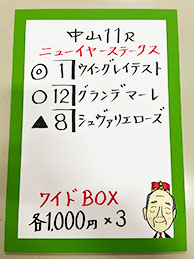 中山11R
ニューイヤーステークス
◎1 ウイングレイテスト
○12 グランデマーレ
▲8 シュヴァリエローズ
ワイドBOX
各1,000円×3